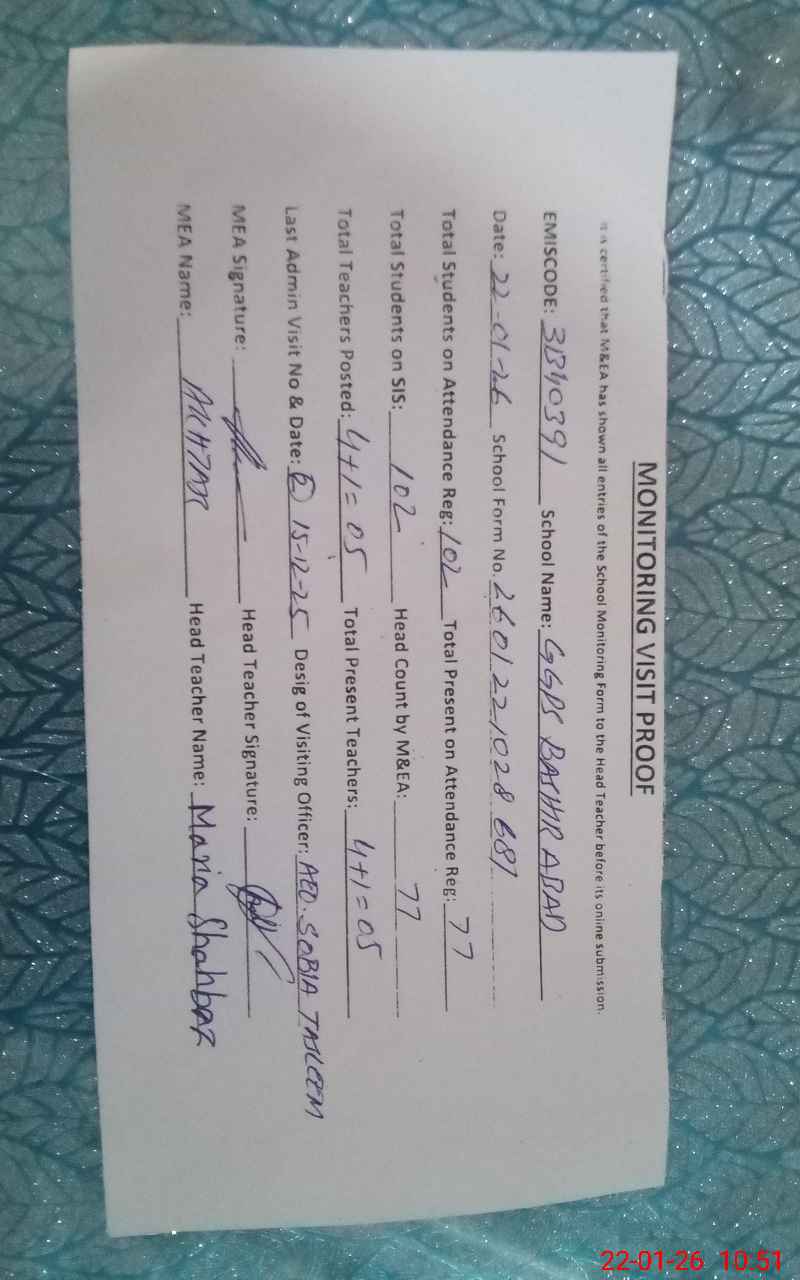 MONITORING VISIT PROOF
It is certified that M&EA has shown all entries of the School Monitoring Form to the Head Teacher before its online submission.
EMISCODE: 31340391 School Name: GGPS BASHIR ABAD
Date: 22-01-26 School Form No. 2601221028687
Total Students on Attendance Reg: 102 Total Present on Attendance Reg: 77
Total Students on SIS: 102 Head Count by M&EA: 77
Total Teachers Posted: 4+1=05 Total Present Teachers: 4+1=05
Last Admin Visit No & Date: 15-12-25 Desig of Visiting Officer: AEO. SOBIA TASLEEM
MEA Signature: Head Teacher Signature:
MEA Name: AKHTAR Head Teacher Name: Maria Shahbaz
22-01-26 10:51